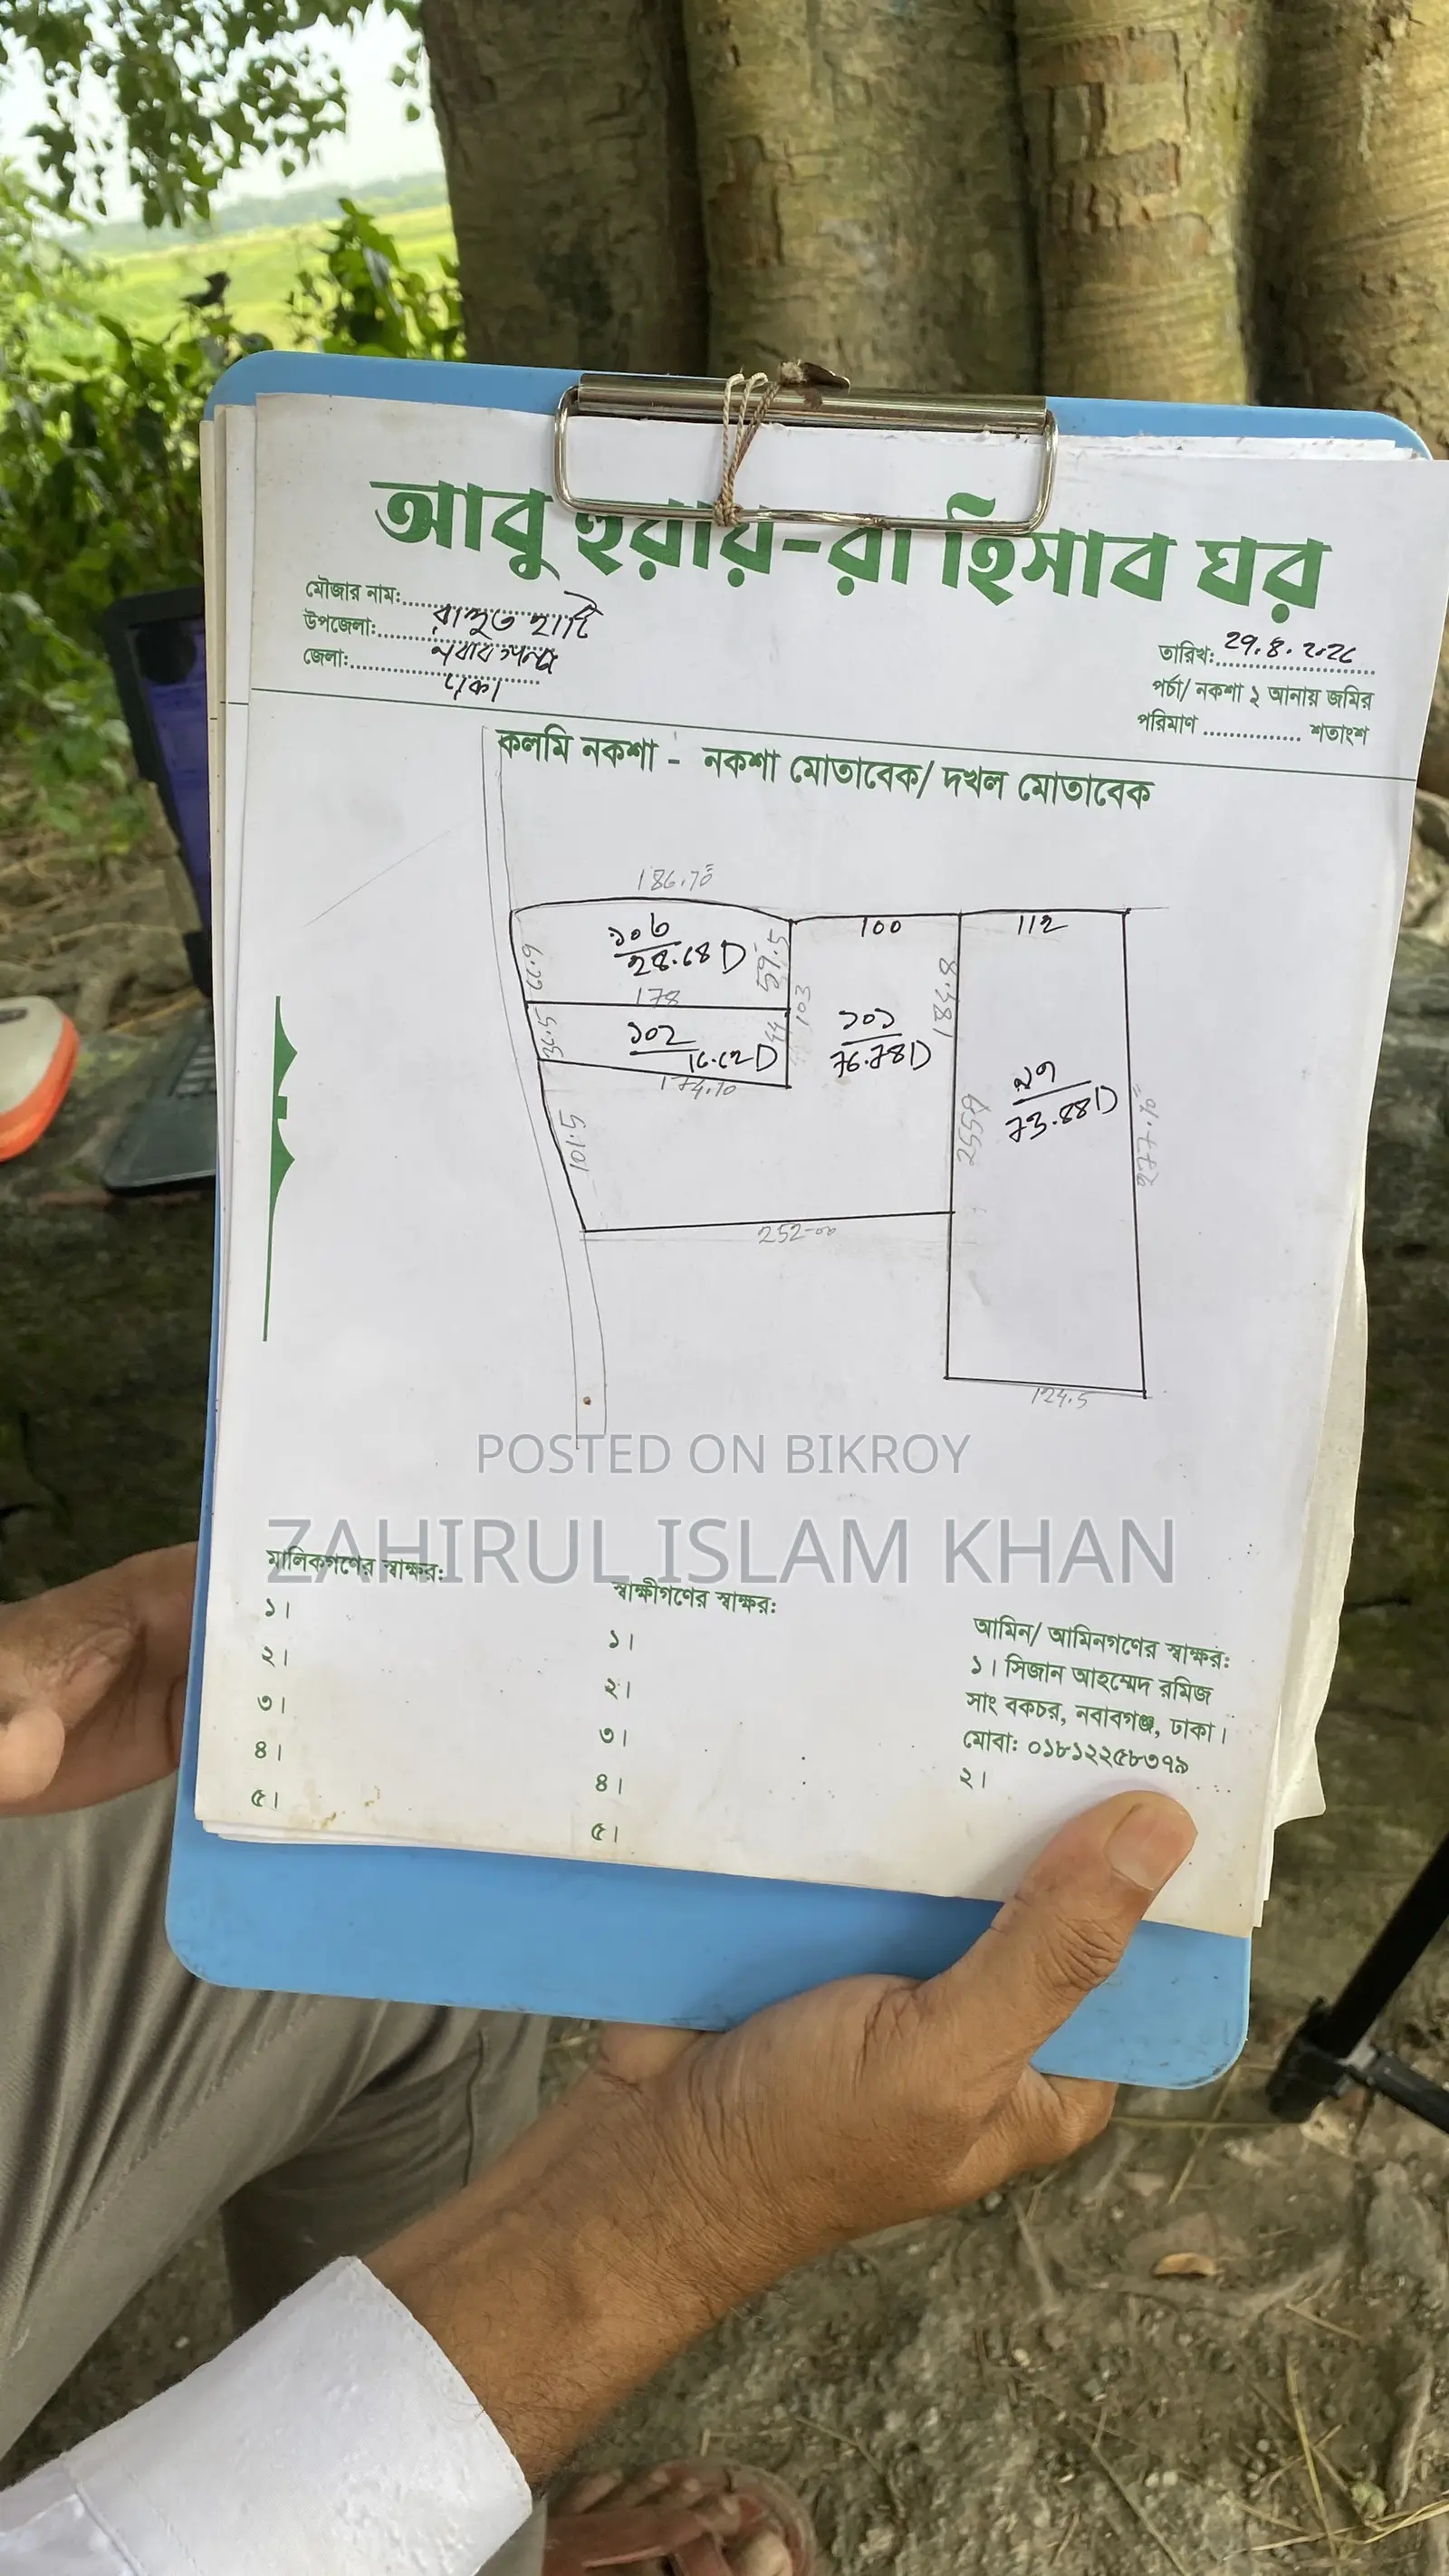 আবু হুরায়-রা হিসাব ঘর
মৌজার নাম:
উপজেলা: নবাবগঞ্জ
জেলা: ঢাকা
তারিখ: 29.8.2026
পর্চা/ নকশা ২ আনায় জমির
পরিমাণ .............. শতাংশ
কলমি নকশা - নকশা মোতাবেক/ দখল মোতাবেক
186.70
100
112
১০৬
28.68 D
59.5
66.9
178
103
184.8
১০২
16.62 D
44
36.5
174.10
১০১
76.78 D
৯৭
73.88 D
101.5
277.10
252-00
124.5
POSTED ON BIKROY
ZAHIRUL ISLAM KHAN
মালিকগণের স্বাক্ষর:
১।
২।
৩।
৪।
৫।
স্বাক্ষীগণের স্বাক্ষর:
১।
২।
৩।
৪।
৫।
আমিন/ আমিনগণের স্বাক্ষর:
১। সিজান আহম্মেদ রমিজ
সাং বকচর, নবাবগঞ্জ, ঢাকা।
মোবা: ০১৮১২২৫৮৩৭৯
২।